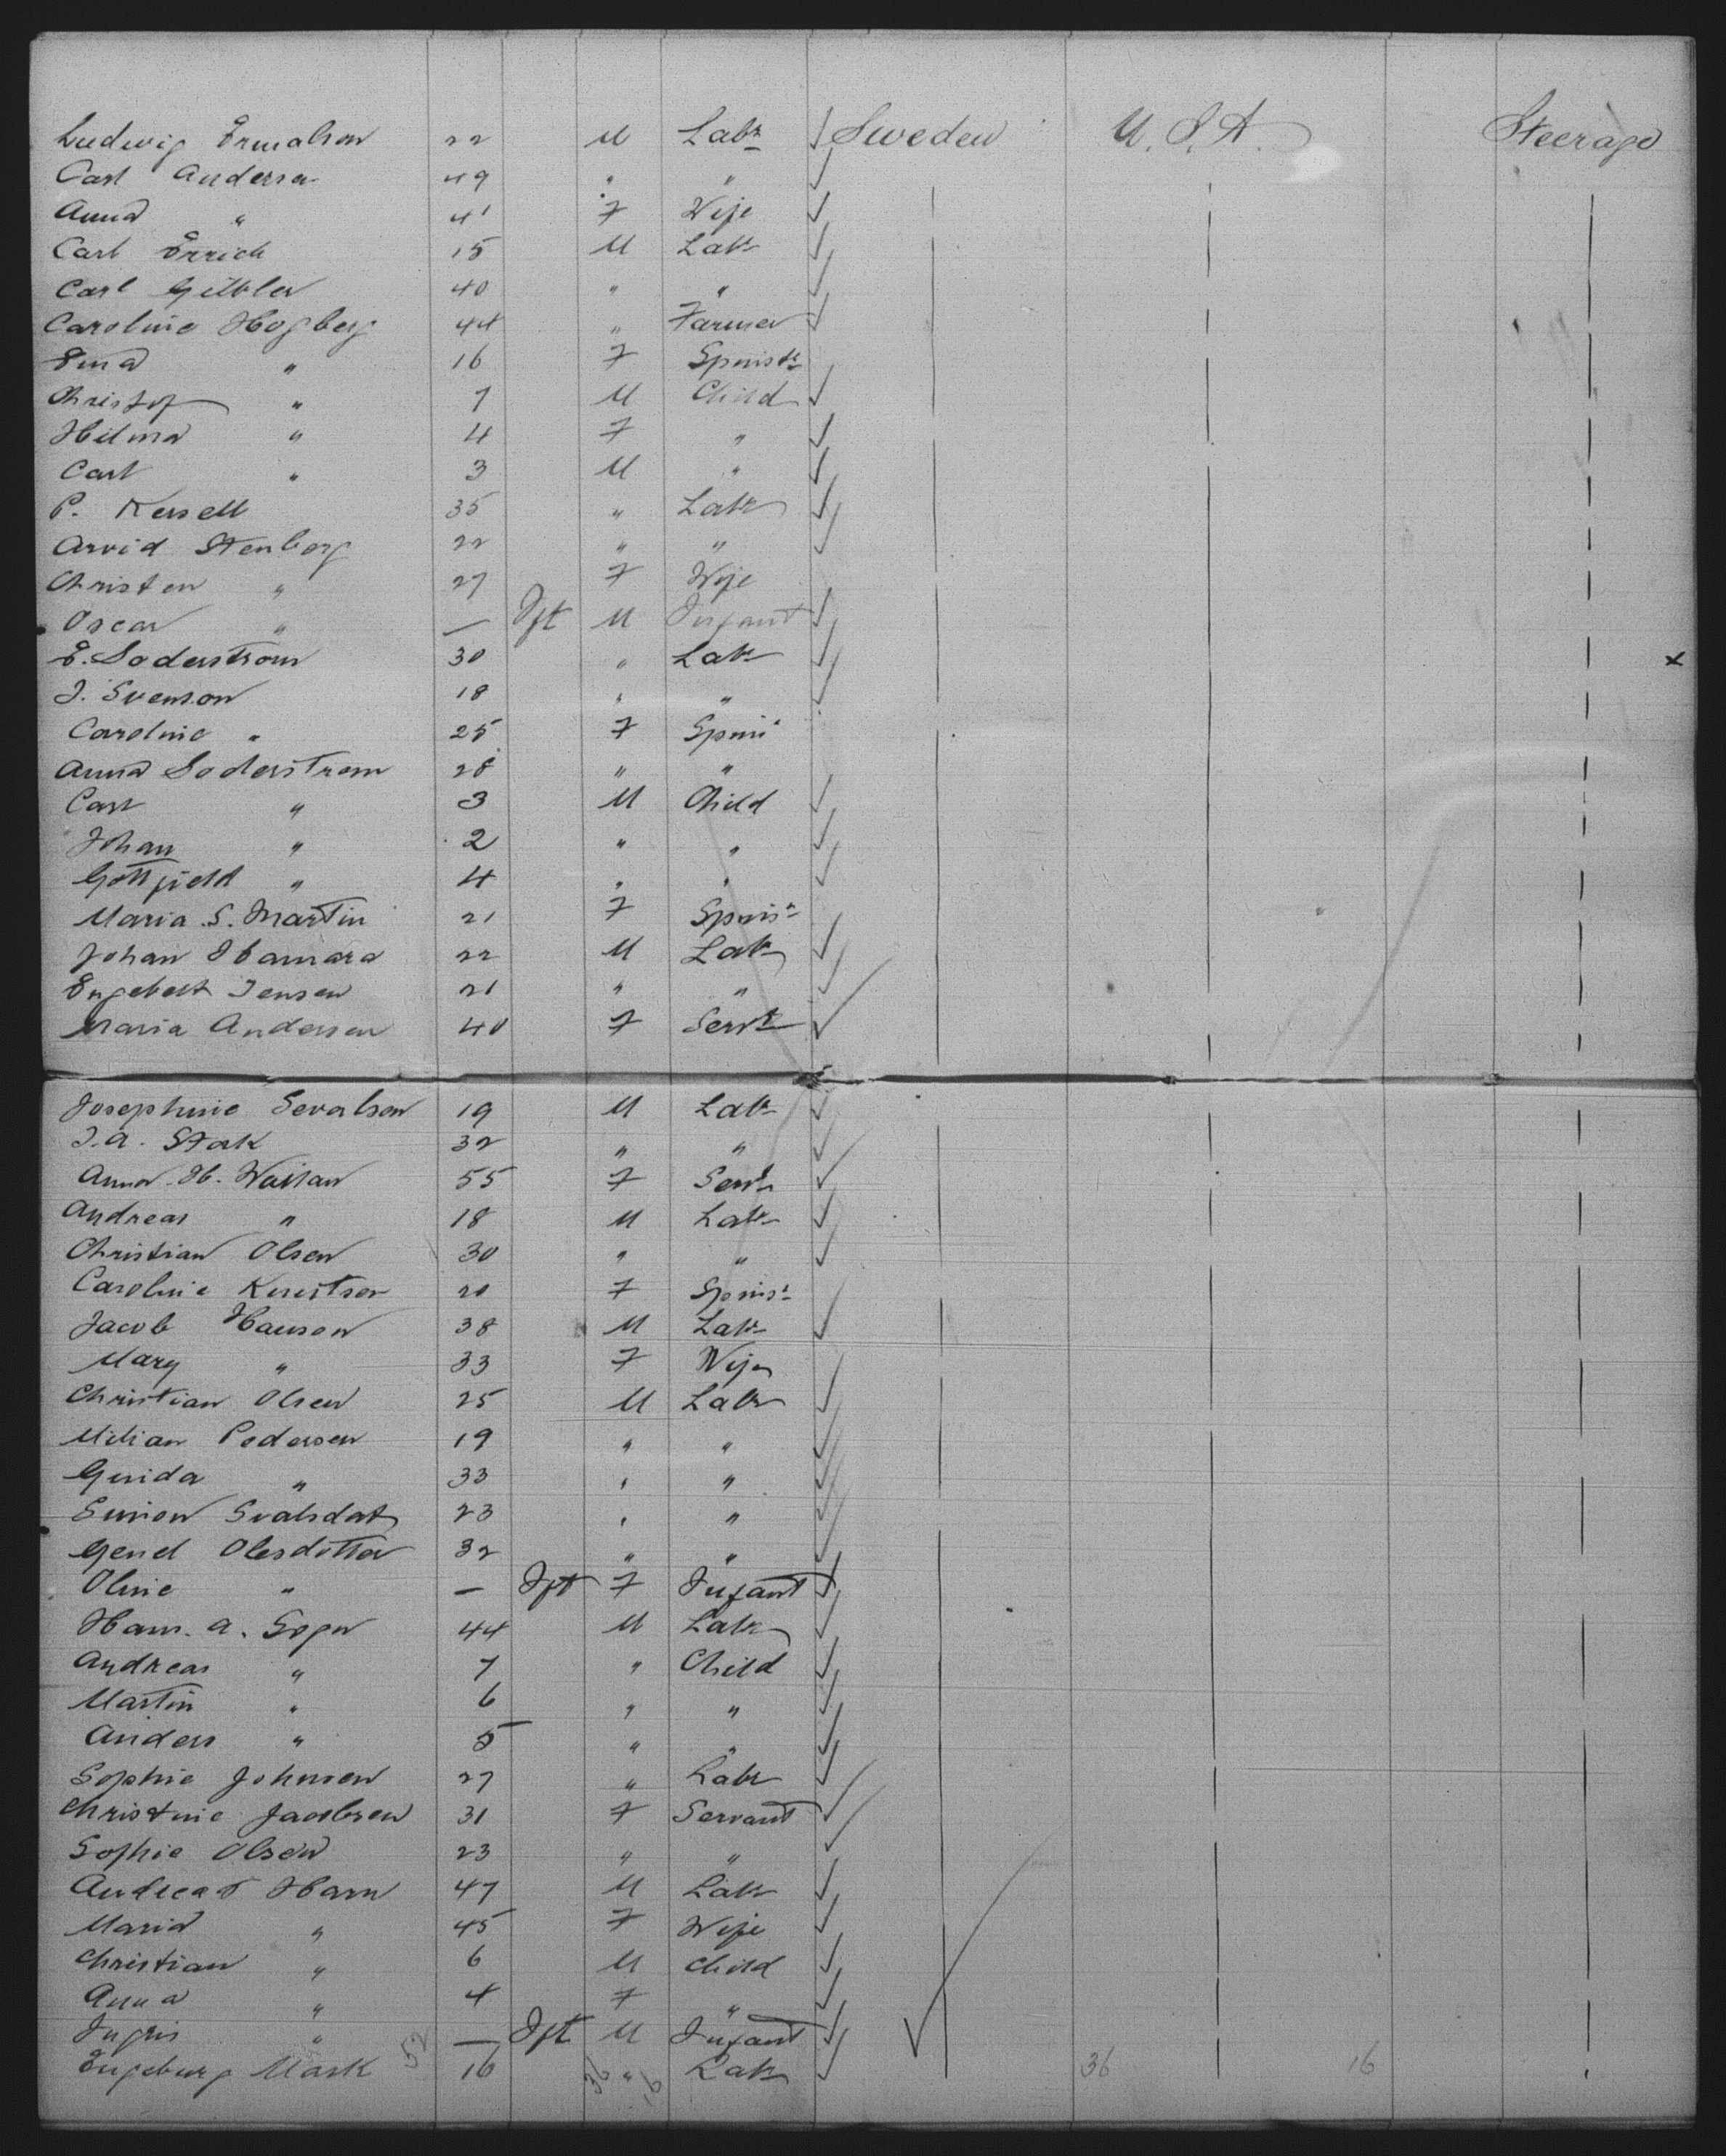 Ludwig Ermalson 22 M Labr Sweden U.S.A. Steerage
Carl Anderson 49 " "
Anna " 41 F Wife
Carl Errick 15 M Labr
Carl 40 " "
Caroline Hogberg 44 " Farmer
Ema " 16 F Spinstr
Christof " 7 M Child
Hilma " 4 F "
Carl " 3 M "
P. Kersell 35 " Labr
Arvid Stenberg 22 " "
Christen " 27 F Wife
Oscar " — Ift M Infant
E. Soderstrom 30 " Labr x
J. Svenson 18 " "
Caroline " 25 F Spinr
Anna Soderstrom 28 " "
Carl " 3 M Child
Johan " 2 " "
Gottfield " 4 " "
Maria S. Martin 21 F Spinsr
Johan Hamara 22 M Labr
Engebert Jensen 21 " "
Maria Andersen 40 F Servt
Josephine 19 M Labr
J.A. Stak 32 " "
Anna H. 55 F Servt
Andreas " 18 M Labr
Christian Olsen 30 " "
Caroline Knutson 20 F Spinsr
Jacob Hanson 38 M Labr
Mary " 33 F Wife
Christian Olsen 25 M Labr
Milian Pedersen 19 " "
Gunda " 33 " "
Simon 23 " "
Gend Olesdotter 32 " "
Oline " — Ift F Infant
Hans. A. 44 M Labr
Andreas " 7 " Child
Martin " 6 " "
Anders " 5 " "
Sophie Johnsen 27 " Labr
Christine Jacobsen 31 F Servant
Sophie Olsen 23 " "
Andreas Harn 47 M Labr
Maria " 45 F Wife
Christian " 6 M Child
Anna " 4 F "
Ingris " — Ift M Infant
Engeburg Mark 52 16 36 " 16 Labr 36 16